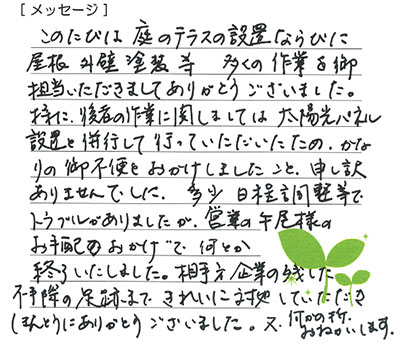 [メッセージ]
このたびは 庭のテラスの設置ならびに
屋根 外壁 塗装 等 多くの作業を御
担当いただきましてありがとうございました。
特に、後者の作業に関しましては 太陽光パネル
設置と併行して行っていただいたため、かな
りの御不便をおかけしましたこと、申し訳
ありませんでした。多少 日程調整等で
トラブルがありましたが、営業の午尾様の
お手配のおかげで 何とか
終了いたしました。相手方企業の残した
不手際の足跡まで きれいに対処していただき
ほんとうにありがとうございました。又、何かの折、
おねがいします。